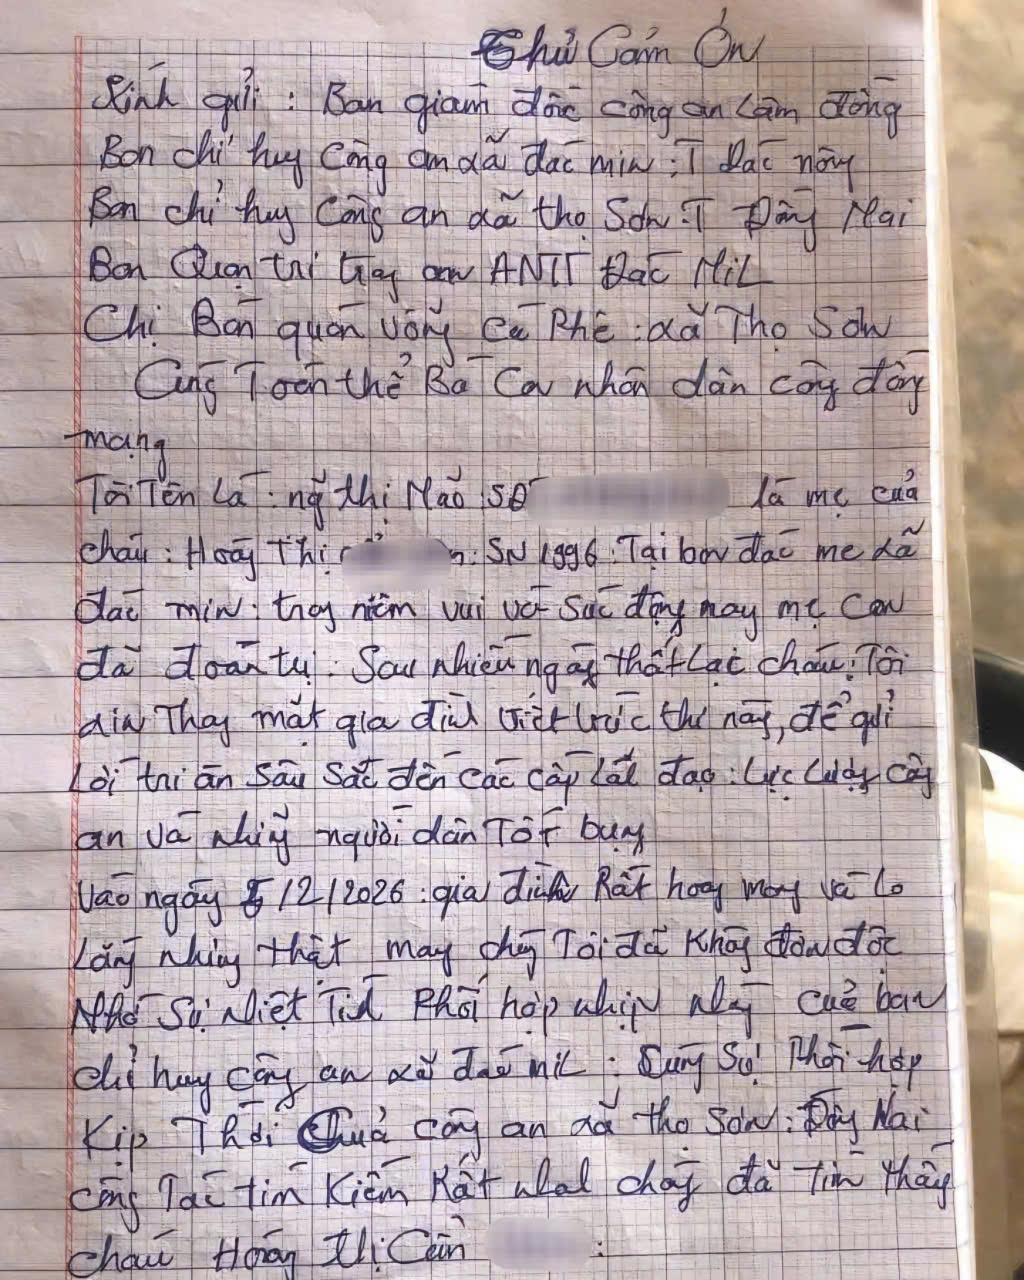 Thư Cảm Ơn
Kính gửi : Ban giam đốc công an Lâm đồng
Ban chỉ huy công an xã đắc min : T Đắc nông
Ban chỉ huy công an xã thọ Sơn : T Đồng Nai
Ban Quan trị trag an ANTT Đắc MiL
Chị Bán quán võng Cà Phê : xã Thọ Sơn
Cùng Toàn thể Bà Con nhân dân cộng đồng
mạng
Tôi Tên Là : ng thị Mão : SĐ là mẹ của
cháu : Hoàng Thị : SN 1996 : Tại bon đắc me xã
đắc min : trog niềm vui và Súc động nay mẹ Con
đã đoàn tụ . Sau nhiều ngày thất Lạc cháu : Tôi
xin Thay mặt gia đình viết bức thư này, để gửi
Lời tri ân sâu sắc đến các cấp Lãt đạo : Lực Lượg côg
an và nhữg người dân Tốt bụg
Vào ngày 5/2/2026 : gia đình Rất hoag mag và Lo
Lắng nhưng thật may chúg Tôi đã Khôg đơn độc
Nhờ Sự nhiệt Tìh Phối hợp nhịp của ban
chỉ huy công an xã đắc mil : Cùng Sự Phối hợp
Kịp Thời của côg an xã thọ Sơn : Đồg Nai
công Tác tìm Kiếm Rất nhah chóg đã Tìm thấy
cháu Hoàng thị :